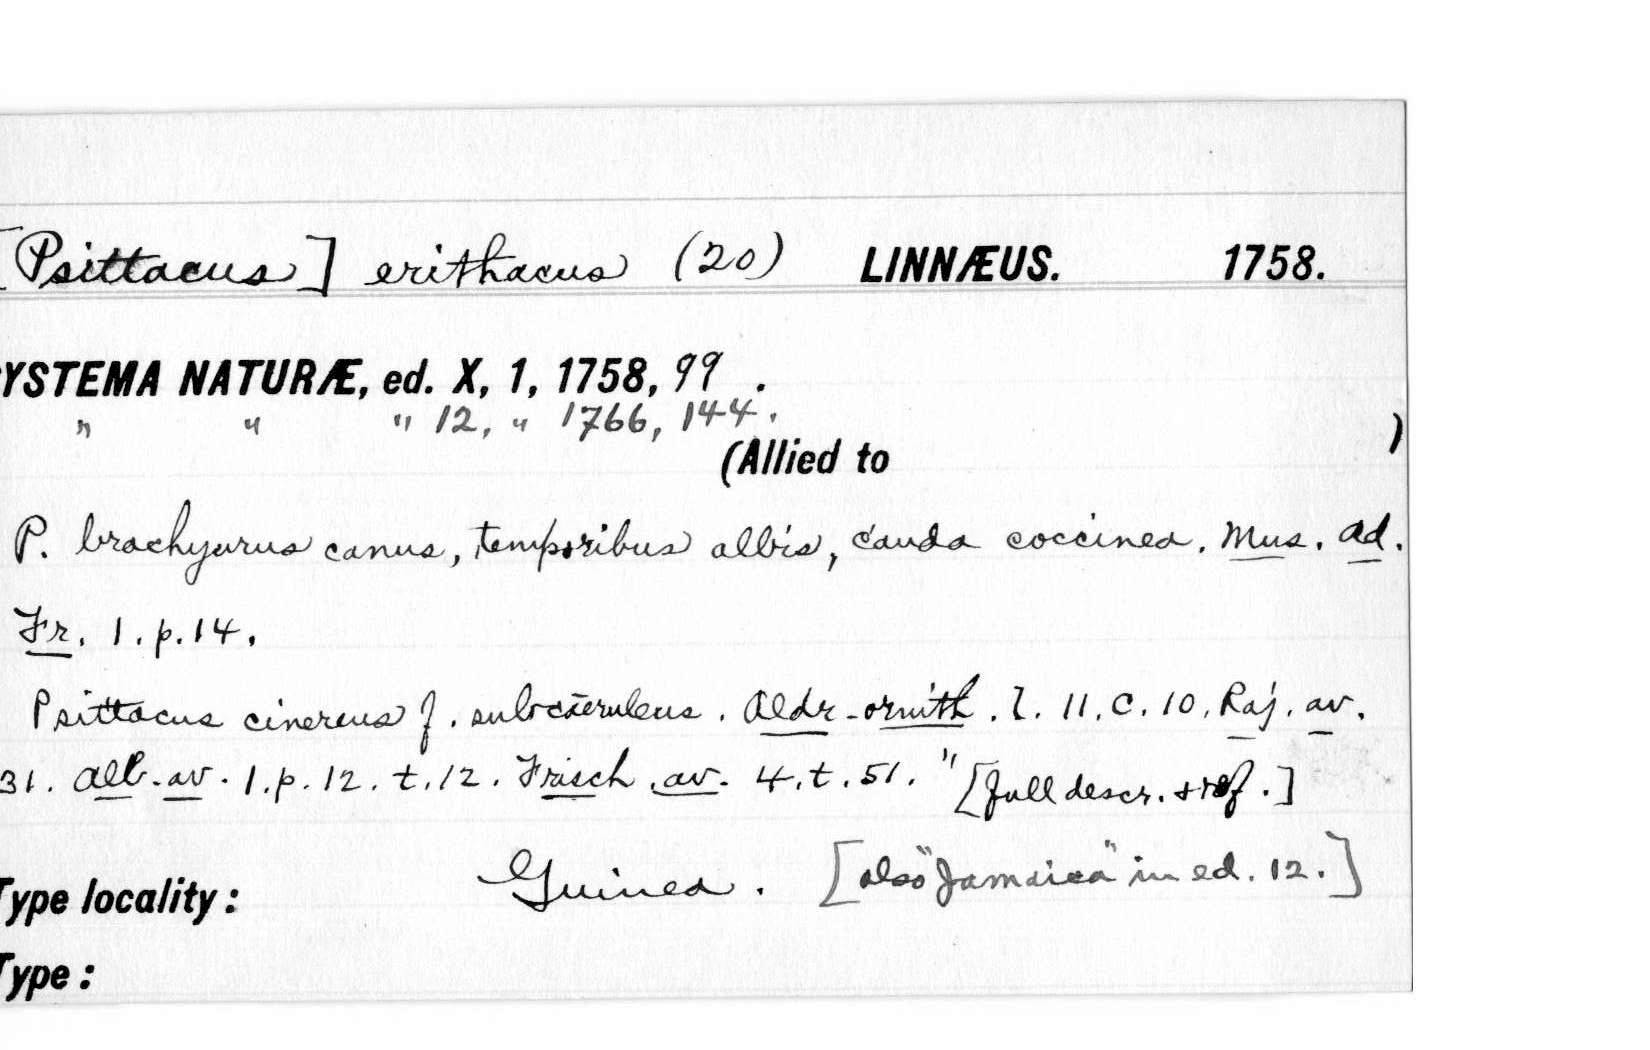 [Psittacus] erithacus (20) LINNÆUS. 1758.
YSTEMA NATURÆ, ed. X, 1, 1758, 99 .
" " " 12, " 1766, 144.
(Allied to )
P. brachyurus canus, temporibus albis, cauda coccinea. Mus. Ad.
Fr. 1. p. 14.
Psittacus cinereus f. subcaeruleus. Aldr. ornith. l. 11. c. 10. Raj. av.
31. Alb. av. 1. p. 12. t. 12. Frisch. av. 4. t. 51. " [full descr. + ref.]
Type locality: Guinea. [also "Jamaica" in ed. 12.]
Type: